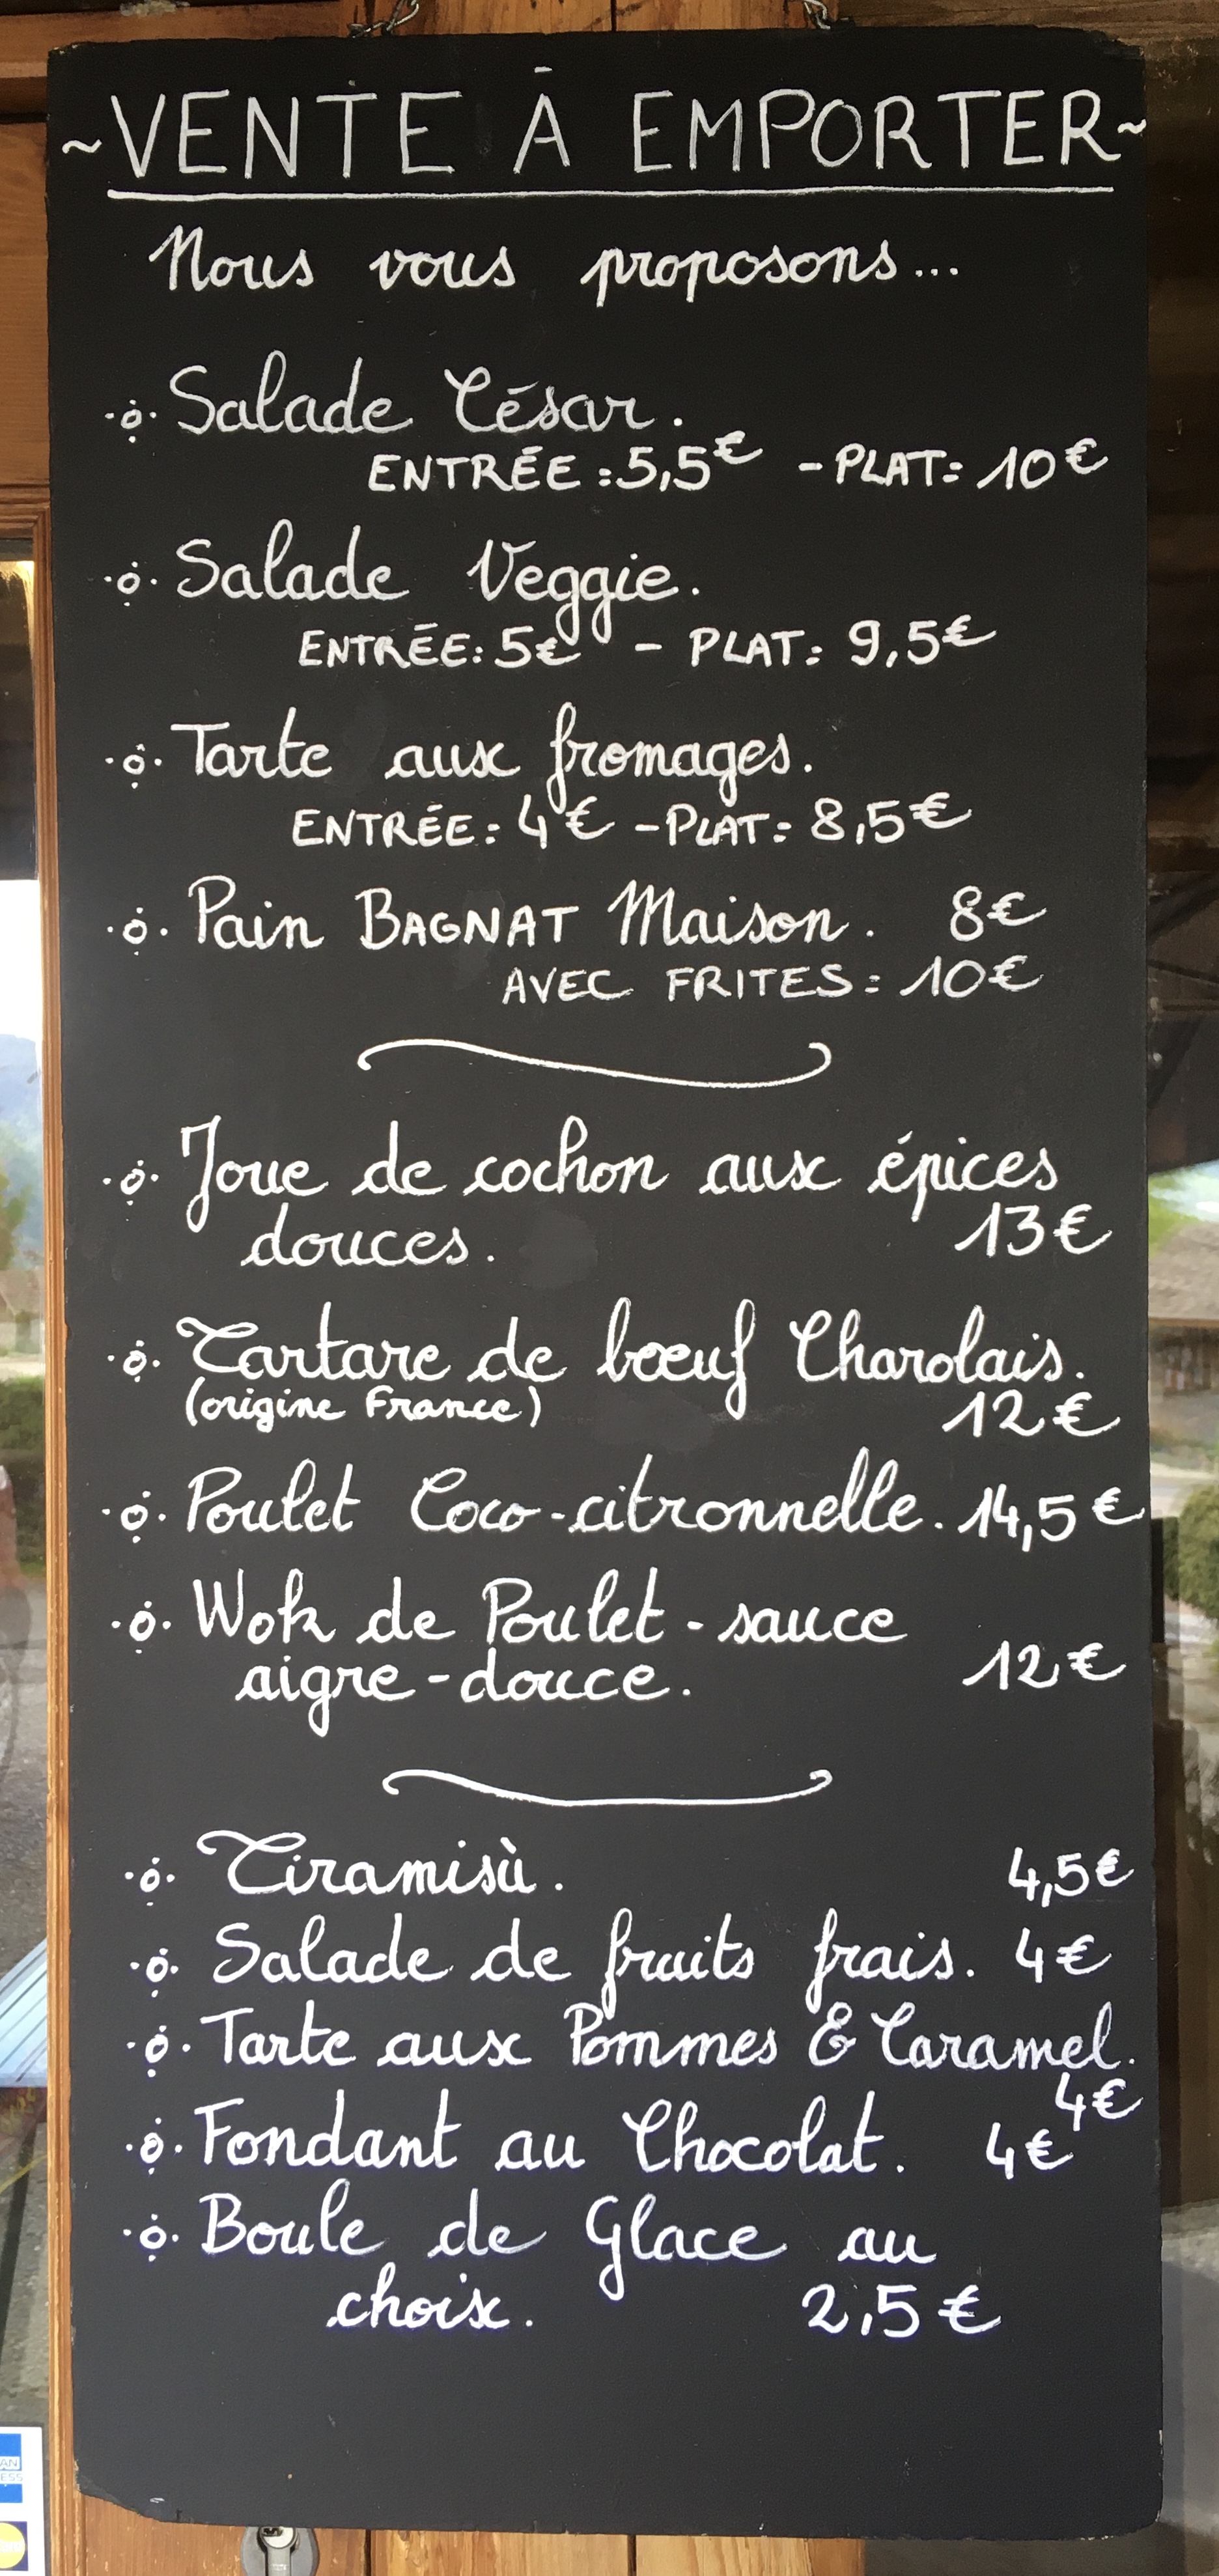 ~VENTE À EMPORTER~
Nous vous proposons...
Salade César.
ENTRÉE : 5,5€ - PLAT: 10€
Salade Veggie.
ENTRÉE: 5€ - PLAT: 9,5€
Tarte aux fromages.
ENTRÉE: 4€ - PLAT: 8,5€
Pain BAGNAT Maison. 8€
AVEC FRITES: 10€
Joue de cochon aux épices
douces. 13€
Tartare de bœuf Charolais.
(origine France) 12€
Poulet Coco-citronnelle. 14,5€
Wok de Poulet - sauce
aigre-douce. 12€
Tiramisù. 4,5€
Salade de fruits frais. 4€
Tarte aux Pommes & Caramel.
4€
Fondant au Chocolat. 4€
Boule de Glace au
choix. 2,5€